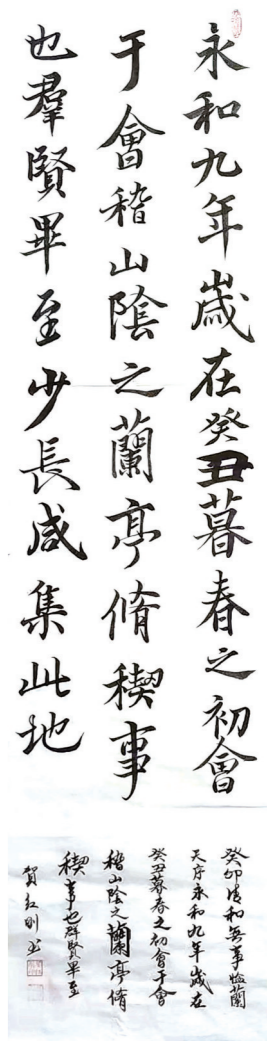 永和九年歲在癸丑暮春之初會
于會稽山陰之蘭亭脩稧事
也羣賢畢至少長咸集此地
癸卯清和無事臨蘭
天序永和九年歲在
癸丑暮春之初會于會
稽山陰之蘭亭脩
稧事也群賢畢至
賀紅剛書